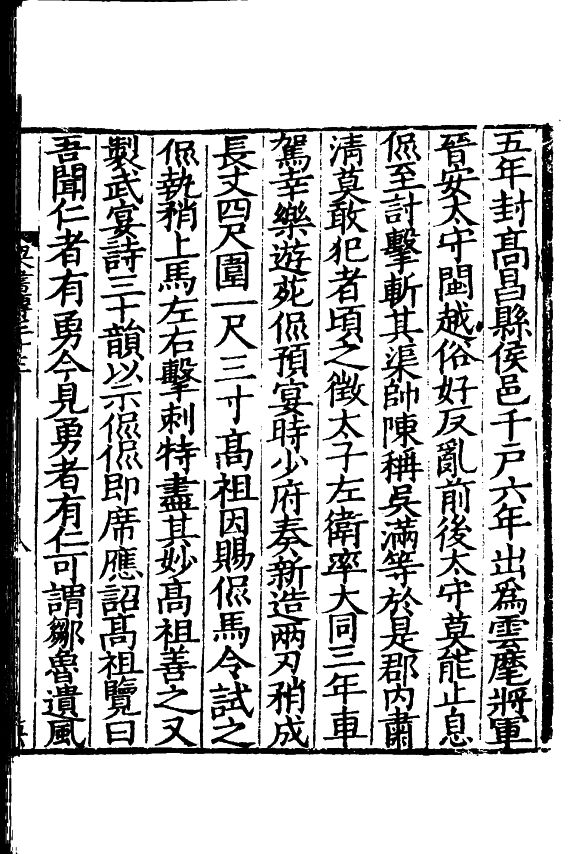 五年封高昌縣侯邑千戸六年出爲雲麾將軍
晉安太守閩越俗好反亂前後太守莫能止息
侃至討擊斬其渠帥陳稱吳滿等於是郡内肅
清莫敢犯者頃之徵太子左衛率大同三年車
駕幸樂遊苑侃預宴時少府奏新造兩刃稍成
長丈四尺圍一尺三寸高祖因賜侃馬令試之
侃執稍上馬左右擊刺特盡其妙高祖善之又
製武宴詩三十韻以示侃侃即席應詔高祖覽曰
吾聞仁者有勇今見勇者有仁可謂鄒魯遺風